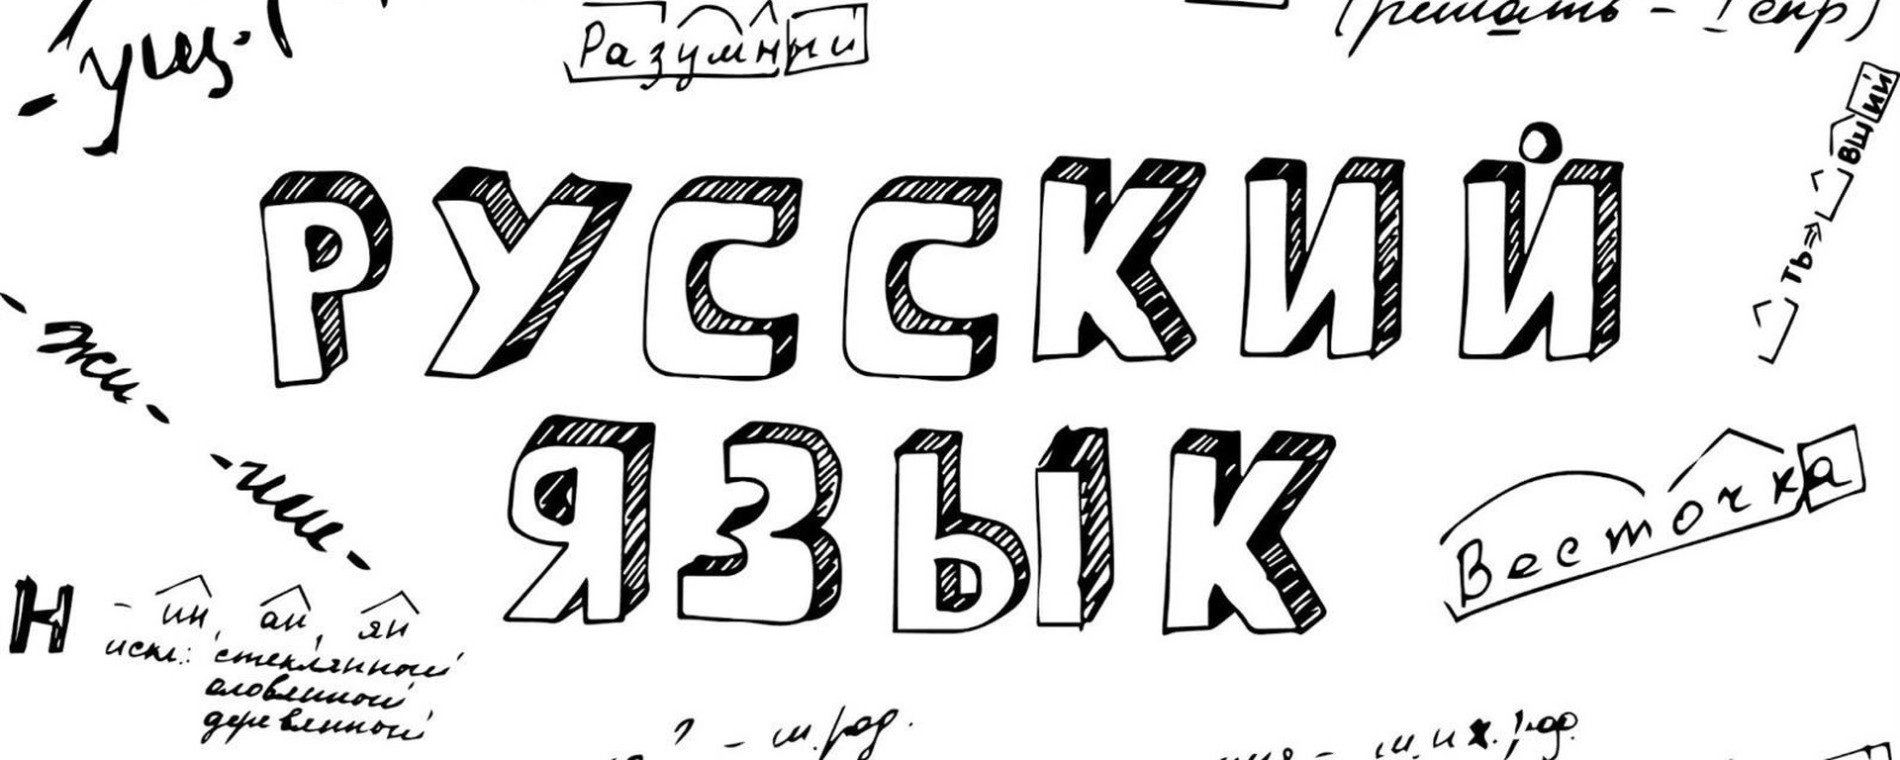 Разумный
(решать - I спр)
вший
ть⇒
РУССКИЙ
- жи -
ЯЗЫК
Весточка
Н - ин, ан, ян
искл.: стеклянный
оловянный
деревянный
? - м. род.
м. и ж. род.